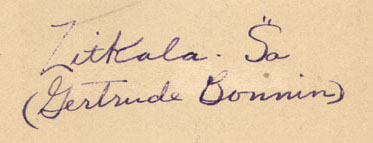 Zitkala. S̈a
(Gertrude Bonnin)